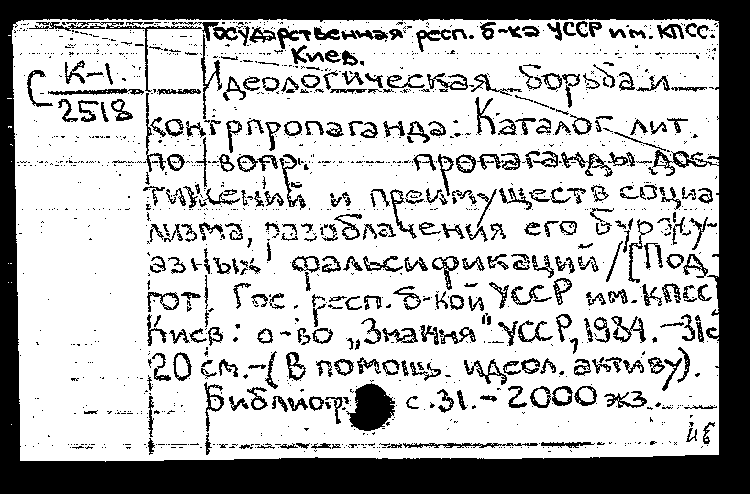 Государственная респ. б-ка УССР им. КПСС.
Киев.
С К-1.
2518
Идеологическая борьба и
контрпропаганда: Каталог лит.
по вопр. пропаганды дос-
тижений и преимуществ социа-
лизма, разоблачения его буржу-
азных фальсификаций / [Под-
гот. Гос. респ. б-кой УССР им. КПСС]
Киев: о-во „Знання" УССР, 1984. – 31с
20 см. – (В помощь идеол. активу). -
Библиогр. с. 31. – 2000 экз.